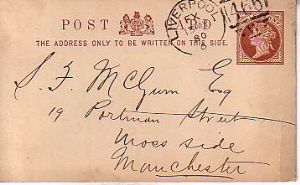 POST CARD
THE ADDRESS ONLY TO BE WRITTEN ON THIS SIDE.
LIVERPOOL
80
466
S. F. McGurn Esq
19 Portman Street
Moss side
Manchester